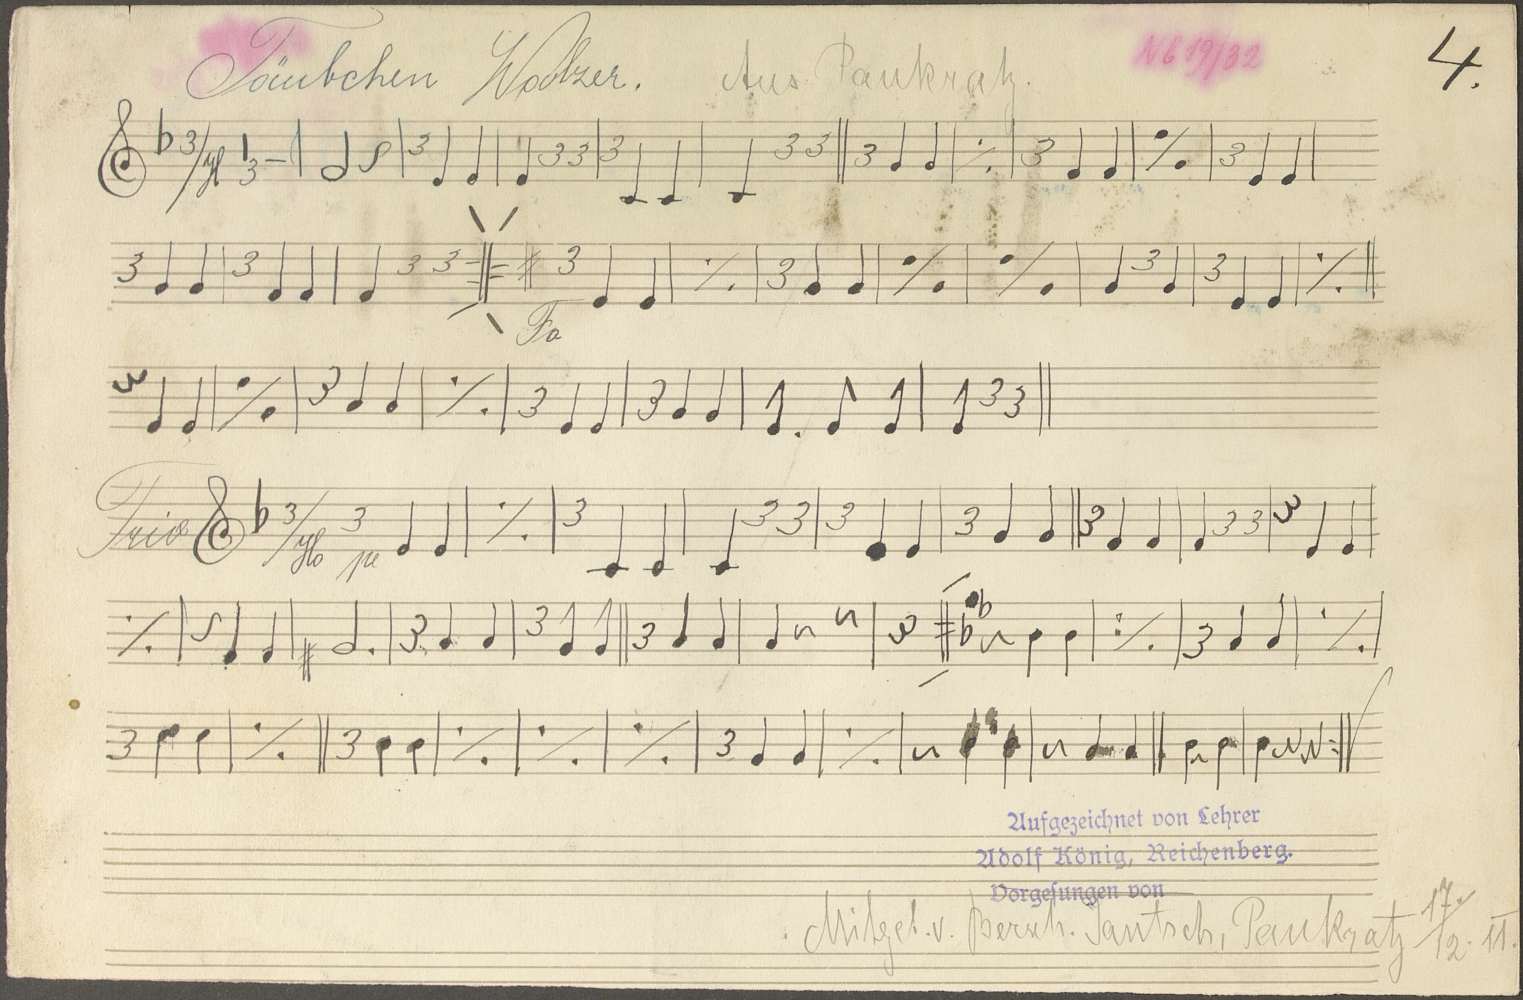 Täubchen Walzer. Aus Pankratz. N 619/32 4.
Fa
Trio
Aufgezeichnet von Lehrer
Adolf König, Reichenberg.
Vorgesungen von
Mitget. v. Jantsch, Pankratz 17./12. 11.